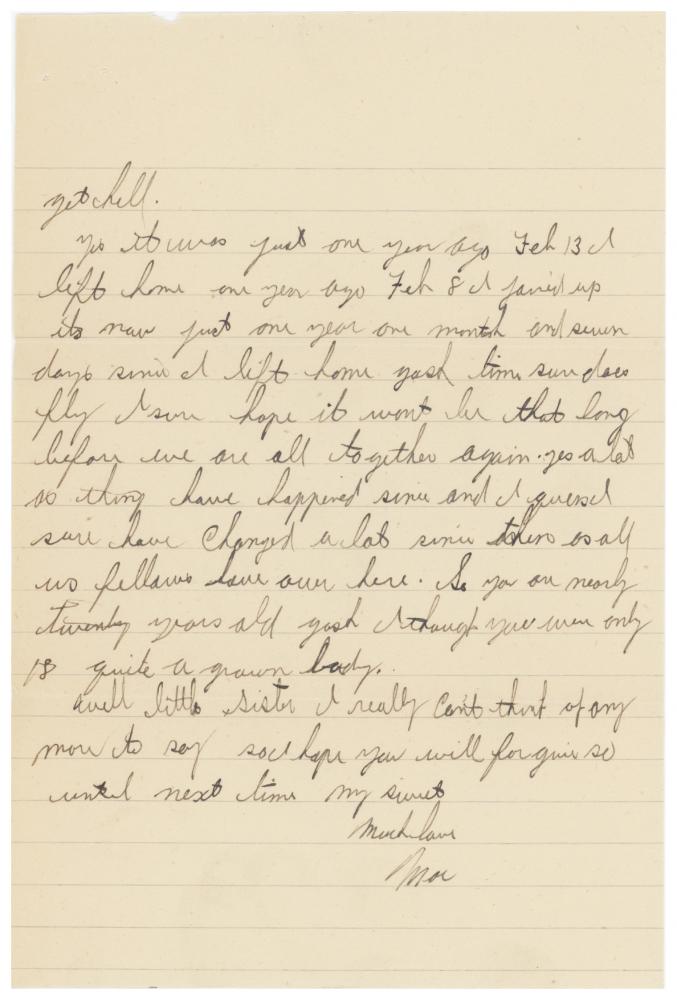 yet hell.
Yes it was just one year ago Feb 13 I
left home one year ago Feb 8 I joined up
its now just one year one month and seven
days since I left home gosh time sure does
fly I sure hope it wont be that long
before we are all together again. yes a lot
as thing have happened since and I guess I
sure have changed a lot since then as all
us fellows have over here. So you are nearly
twenty years old gosh I though you were only
18 quite a grown lady.
Well little Sister I really Cant think of any
more to say so I hope you will forgive so
until next time my sweet
Much love
Moe